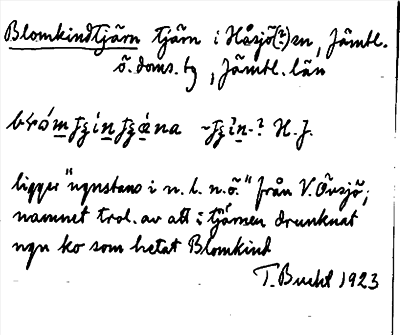 Blomkindtjärn tjärn i Håsjö(?)sn, Jämtl.
ö. doms. tg, Jämtl. län
H. J.
ligger "ngnstans i n. l. n. ö." från V. Övsjö;
namnet trol. av att i tjärnen drunknat
ngn ko som hetat Blomkind
T. Bucht 1923